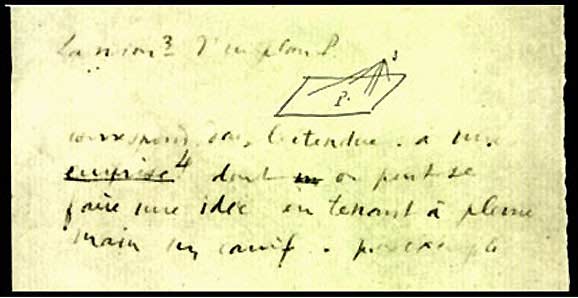 La vision 3 d'un plan P.
P.
correspond dans l'étendue à une
emprise 4 dont on peut se
faire une idée en tenant à pleine
main un canif. par exemple